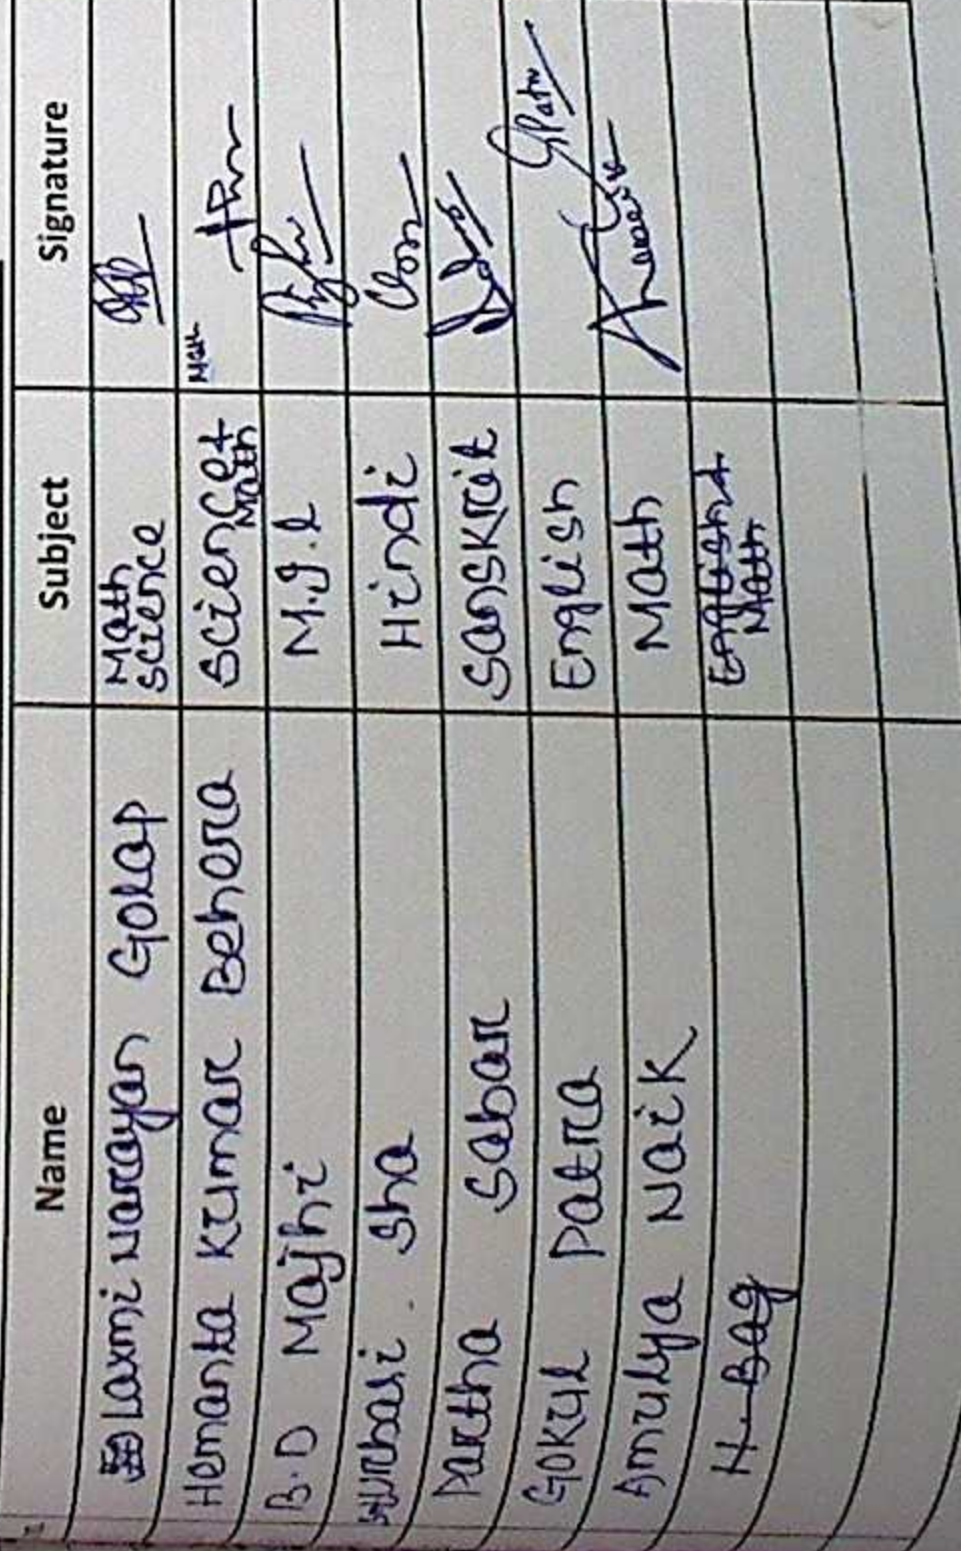 Name Subject Signature
Laxmi Narayan Golap Math Science
Hemanta Kumar Behera Science + Math Math
B.D Majhi M.I.L
Hindi
Partha Sabar Sanskrit
Gokul Patra English GPatra
Amulya Naik Math
H. Bag English + Math